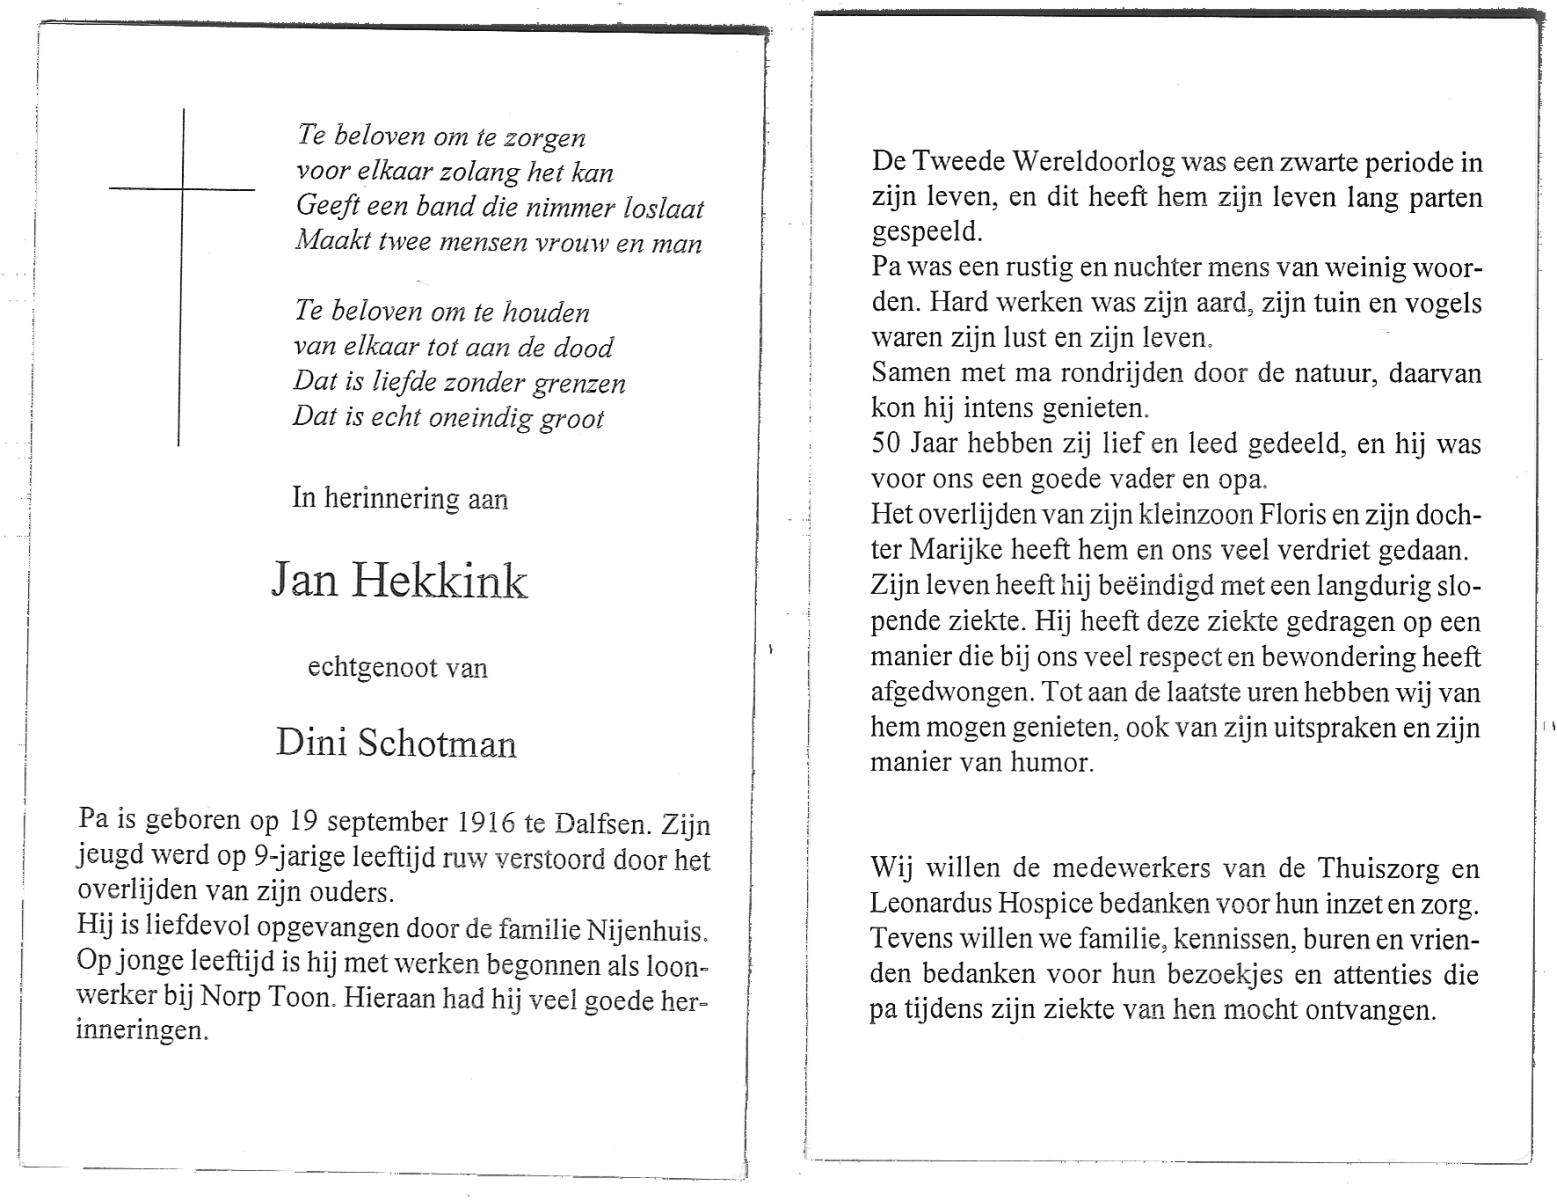 Te beloven om te zorgen
voor elkaar zolang het kan
Geeft een band die nimmer loslaat
Maakt twee mensen vrouw en man
Te beloven om te houden
van elkaar tot aan de dood
Dat is liefde zonder grenzen
Dat is echt oneindig groot
In herinnering aan
Jan Hekkink
echtgenoot van
Dini Schotman
Pa is geboren op 19 september 1916 te Dalfsen. Zijn
jeugd werd op 9-jarige leeftijd ruw verstoord door het
overlijden van zijn ouders.
Hij is liefdevol opgevangen door de familie Nijenhuis.
Op jonge leeftijd is hij met werken begonnen als loon-
werker bij Norp Toon. Hieraan had hij veel goede her-
inneringen.
De Tweede Wereldoorlog was een zwarte periode in
zijn leven, en dit heeft hem zijn leven lang parten
gespeeld.
Pa was een rustig en nuchter mens van weinig woor-
den. Hard werken was zijn aard, zijn tuin en vogels
waren zijn lust en zijn leven.
Samen met ma rondrijden door de natuur, daarvan
kon hij intens genieten.
50 Jaar hebben zij lief en leed gedeeld, en hij was
voor ons een goede vader en opa.
Het overlijden van zijn kleinzoon Floris en zijn doch-
ter Marijke heeft hem en ons veel verdriet gedaan.
Zijn leven heeft hij beëindigd met een langdurig slo-
pende ziekte. Hij heeft deze ziekte gedragen op een
manier die bij ons veel respect en bewondering heeft
afgedwongen. Tot aan de laatste uren hebben wij van
hem mogen genieten, ook van zijn uitspraken en zijn
manier van humor.
Wij willen de medewerkers van de Thuiszorg en
Leonardus Hospice bedanken voor hun inzet en zorg.
Tevens willen we familie, kennissen, buren en vrien-
den bedanken voor hun bezoekjes en attenties die
pa tijdens zijn ziekte van hen mocht ontvangen.